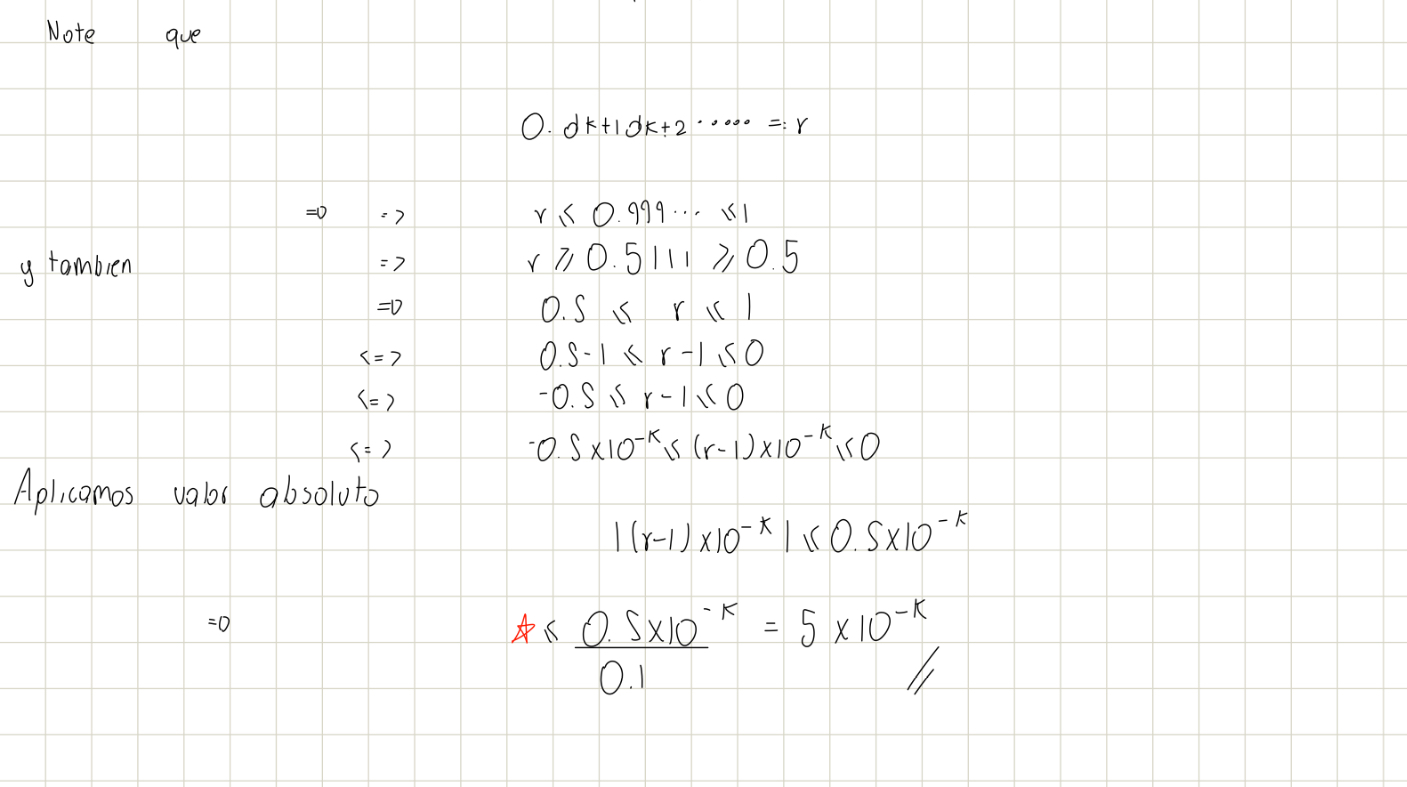 Note que
0. dk+1dk+2 ······ =: r
=D => r ≤ 0.999··· ≤ 1
y tambien => r ≥ 0.5111 ≥ 0.5
=D 0.5 ≤ r ≤ 1
<=> 0.5-1 ≤ r-1 ≤ 0
<=> -0.5 ≤ r-1 ≤ 0
<=> -0.5x10^-K ≤ (r-1)x10^-K ≤ 0
Aplicamos valor absoluto
|(r-1)x10^-K| ≤ 0.5x10^-K
=D ☆ ≤ 0.5x10^-K / 0.1 = 5x10^-K //